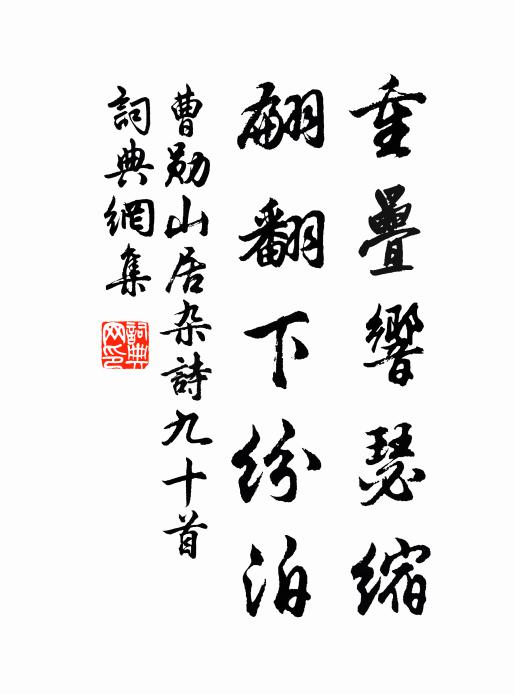 重疊響瑟縮
翩翻下紛泊
曹勛山居杂詩九十首
詞典網集
詞典網印